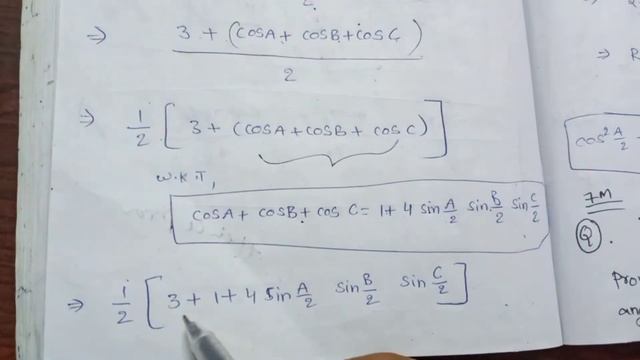 ⇒ 3 + (cosA + cosB + cosC) / 2
⇒ 1/2 [ 3 + (cosA + cosB + cos C) ]
W.K.T,
cosA + cosB + cos C = 1 + 4 sin A/2 sin B/2 sin C/2
⇒ 1/2 [ 3 + 1 + 4 sin A/2 sin B/2 sin C/2 ]
⇒ R
cos² A/2
7M
Q.
Pro
an